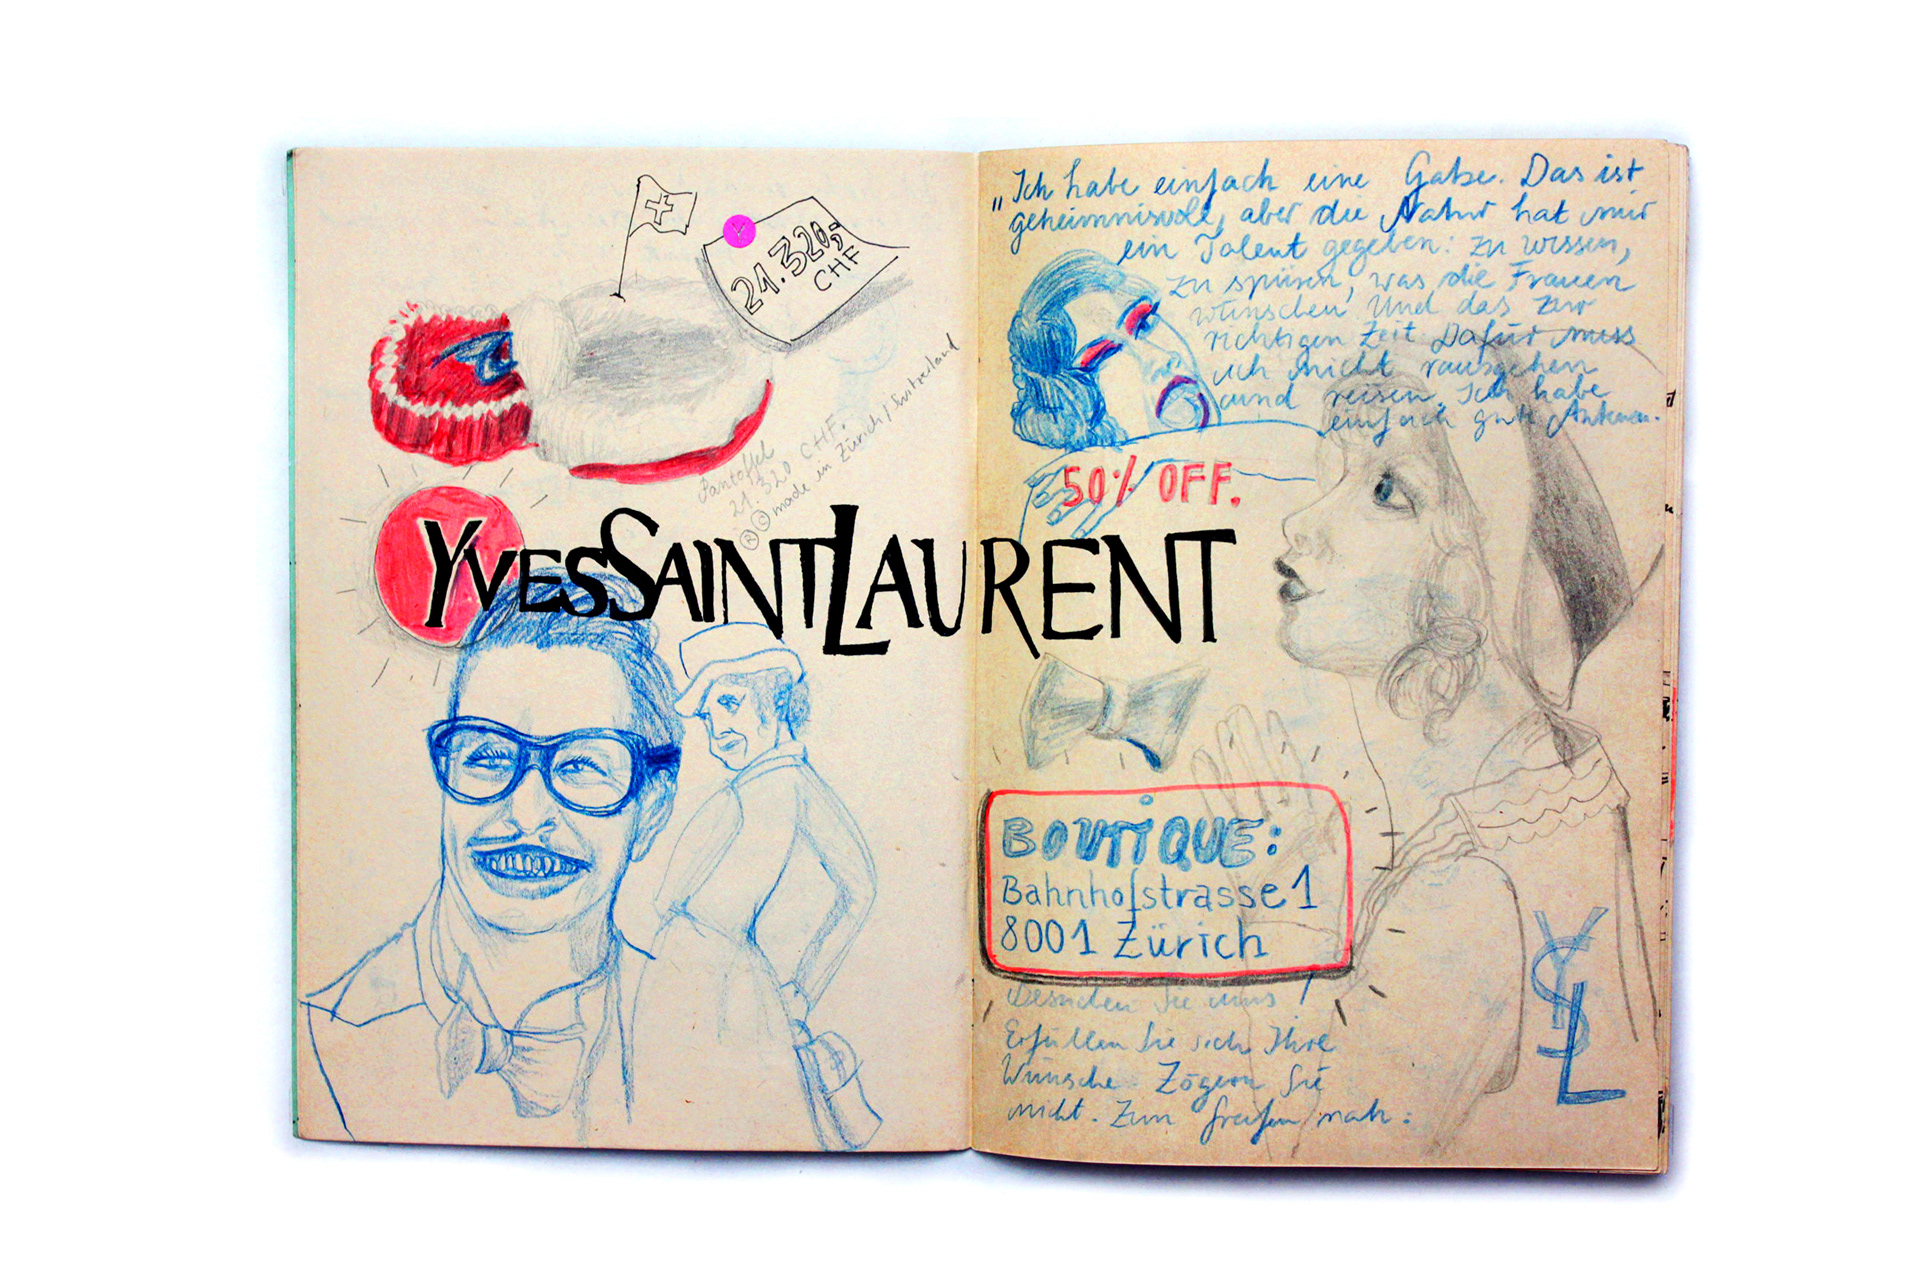 21.320,-
CHF
Pantoffel
21.320 CHF.
® © made in Zürich / Switzerland
YVESSAINTLAURENT
„Ich habe einfach eine Gabe. Das ist
geheimnisvoll, aber die Natur hat mir
ein Talent gegeben: zu wissen,
zu spüren, was die Frauen
wünschen. Und das zur
richtigen Zeit. Dafür muss
ich nicht rausgehen
und reisen. Ich habe
einfach gute Antennen.
50% OFF.
BOUTIQUE:
Bahnhofstrasse 1
8001 Zürich
Besuchen Sie uns!
Erfüllen Sie sich Ihre
Wünsche. Zögern Sie
nicht. Zum Greifen nah:
YSL